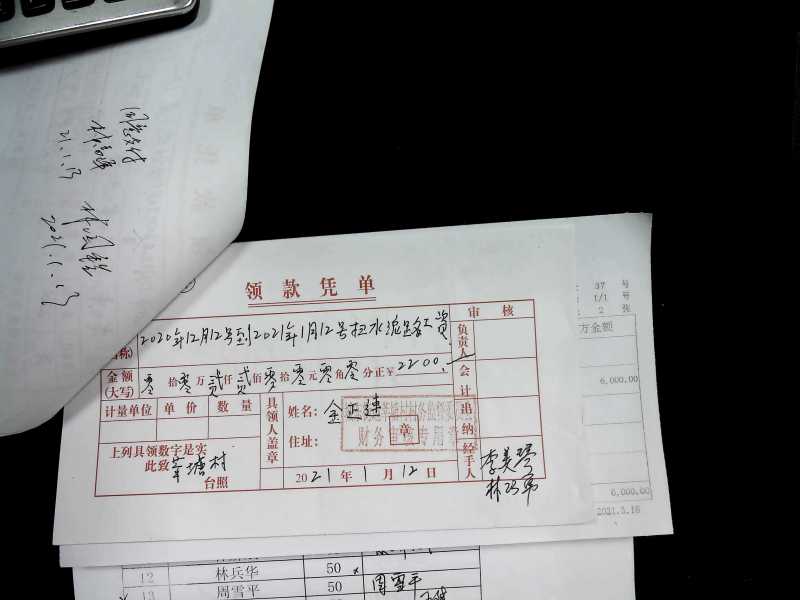 21.1.13
2021.1.13
领款凭单
审核
2020年12月12号到2021年1月12号扫水泥路工资
名称
负责人
金额(大写) 零拾零万贰仟贰佰零拾零元零角零分正¥2200.
会计
计量单位 单价 数量
具领人盖章
姓名:金正连
住址:
章
财务审核专用章
出纳
上列具领数字是实
此致
莘塘村
台照
2021年1月12日
经手人
李美琴
37 号
1/1 号
2 张
万金额
6,000.00
6,000.00
2021.3.16
12 林兵华 50
13 周雪平 50 周雪平